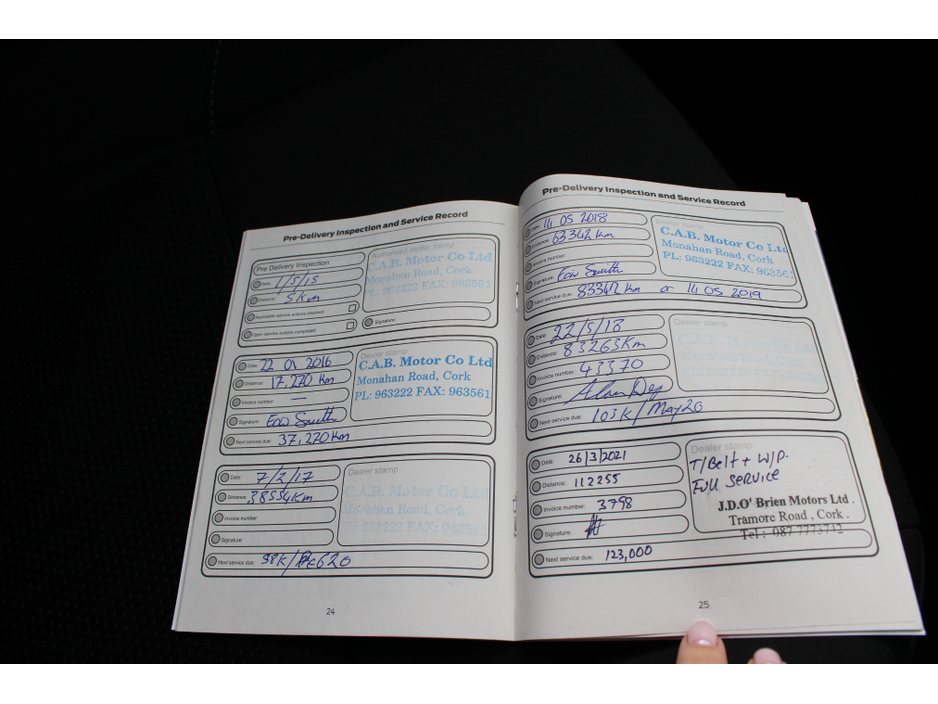 Pre-Delivery Inspection and Service Record
Pre Delivery Inspection
Authorised dealer stamp
Date: 1/5/15
Distance: 5 Km
Applicable service actions checked
Open service actions completed
Signature:
C.A.B. Motor Co Ltd
Monahan Road, Cork
PL: 963222 FAX: 963561
Date: 22 01 2016
Distance: 17,220 Km
Invoice number: —
Signature: Eow Smith
Next service due: 37,220 Km
Dealer stamp
C.A.B. Motor Co Ltd
Monahan Road, Cork
PL: 963222 FAX: 963561
Date: 7/2/17
Distance: 38554Km
Invoice number:
Signature:
Next service due: 58K/
Dealer stamp
C.A.B. Motor Co Ltd
Monahan Road, Cork
PL: 963222 FAX: 963561
24
Pre-Delivery Inspection and Service Record
Date: 14 05 2018
Distance: 63342 Km
Invoice number:
Signature: Eow Smith
Next service due: 83342 Km or 14 05 2019
C.A.B. Motor Co Ltd
Monahan Road, Cork
PL: 963222 FAX: 963561
Date: 22/5/18
Distance: 83265Km
Invoice number: 43370
Signature:
Next service due: 103K/May20
Dealer stamp
Date: 26/3/2021
Distance: 112255
Invoice number: 3798
Signature:
Next service due: 123,000
Dealer stamp
T/Belt + W/P.
Full Service
J.D.O'Brien Motors Ltd.
Tramore Road, Cork.
Tel: 087 7773742
25